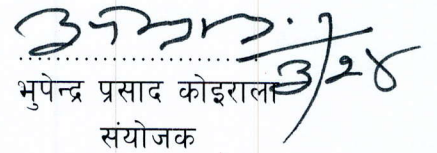 ३/२४
भुपेन्द्र प्रसाद कोइराला
संयोजक